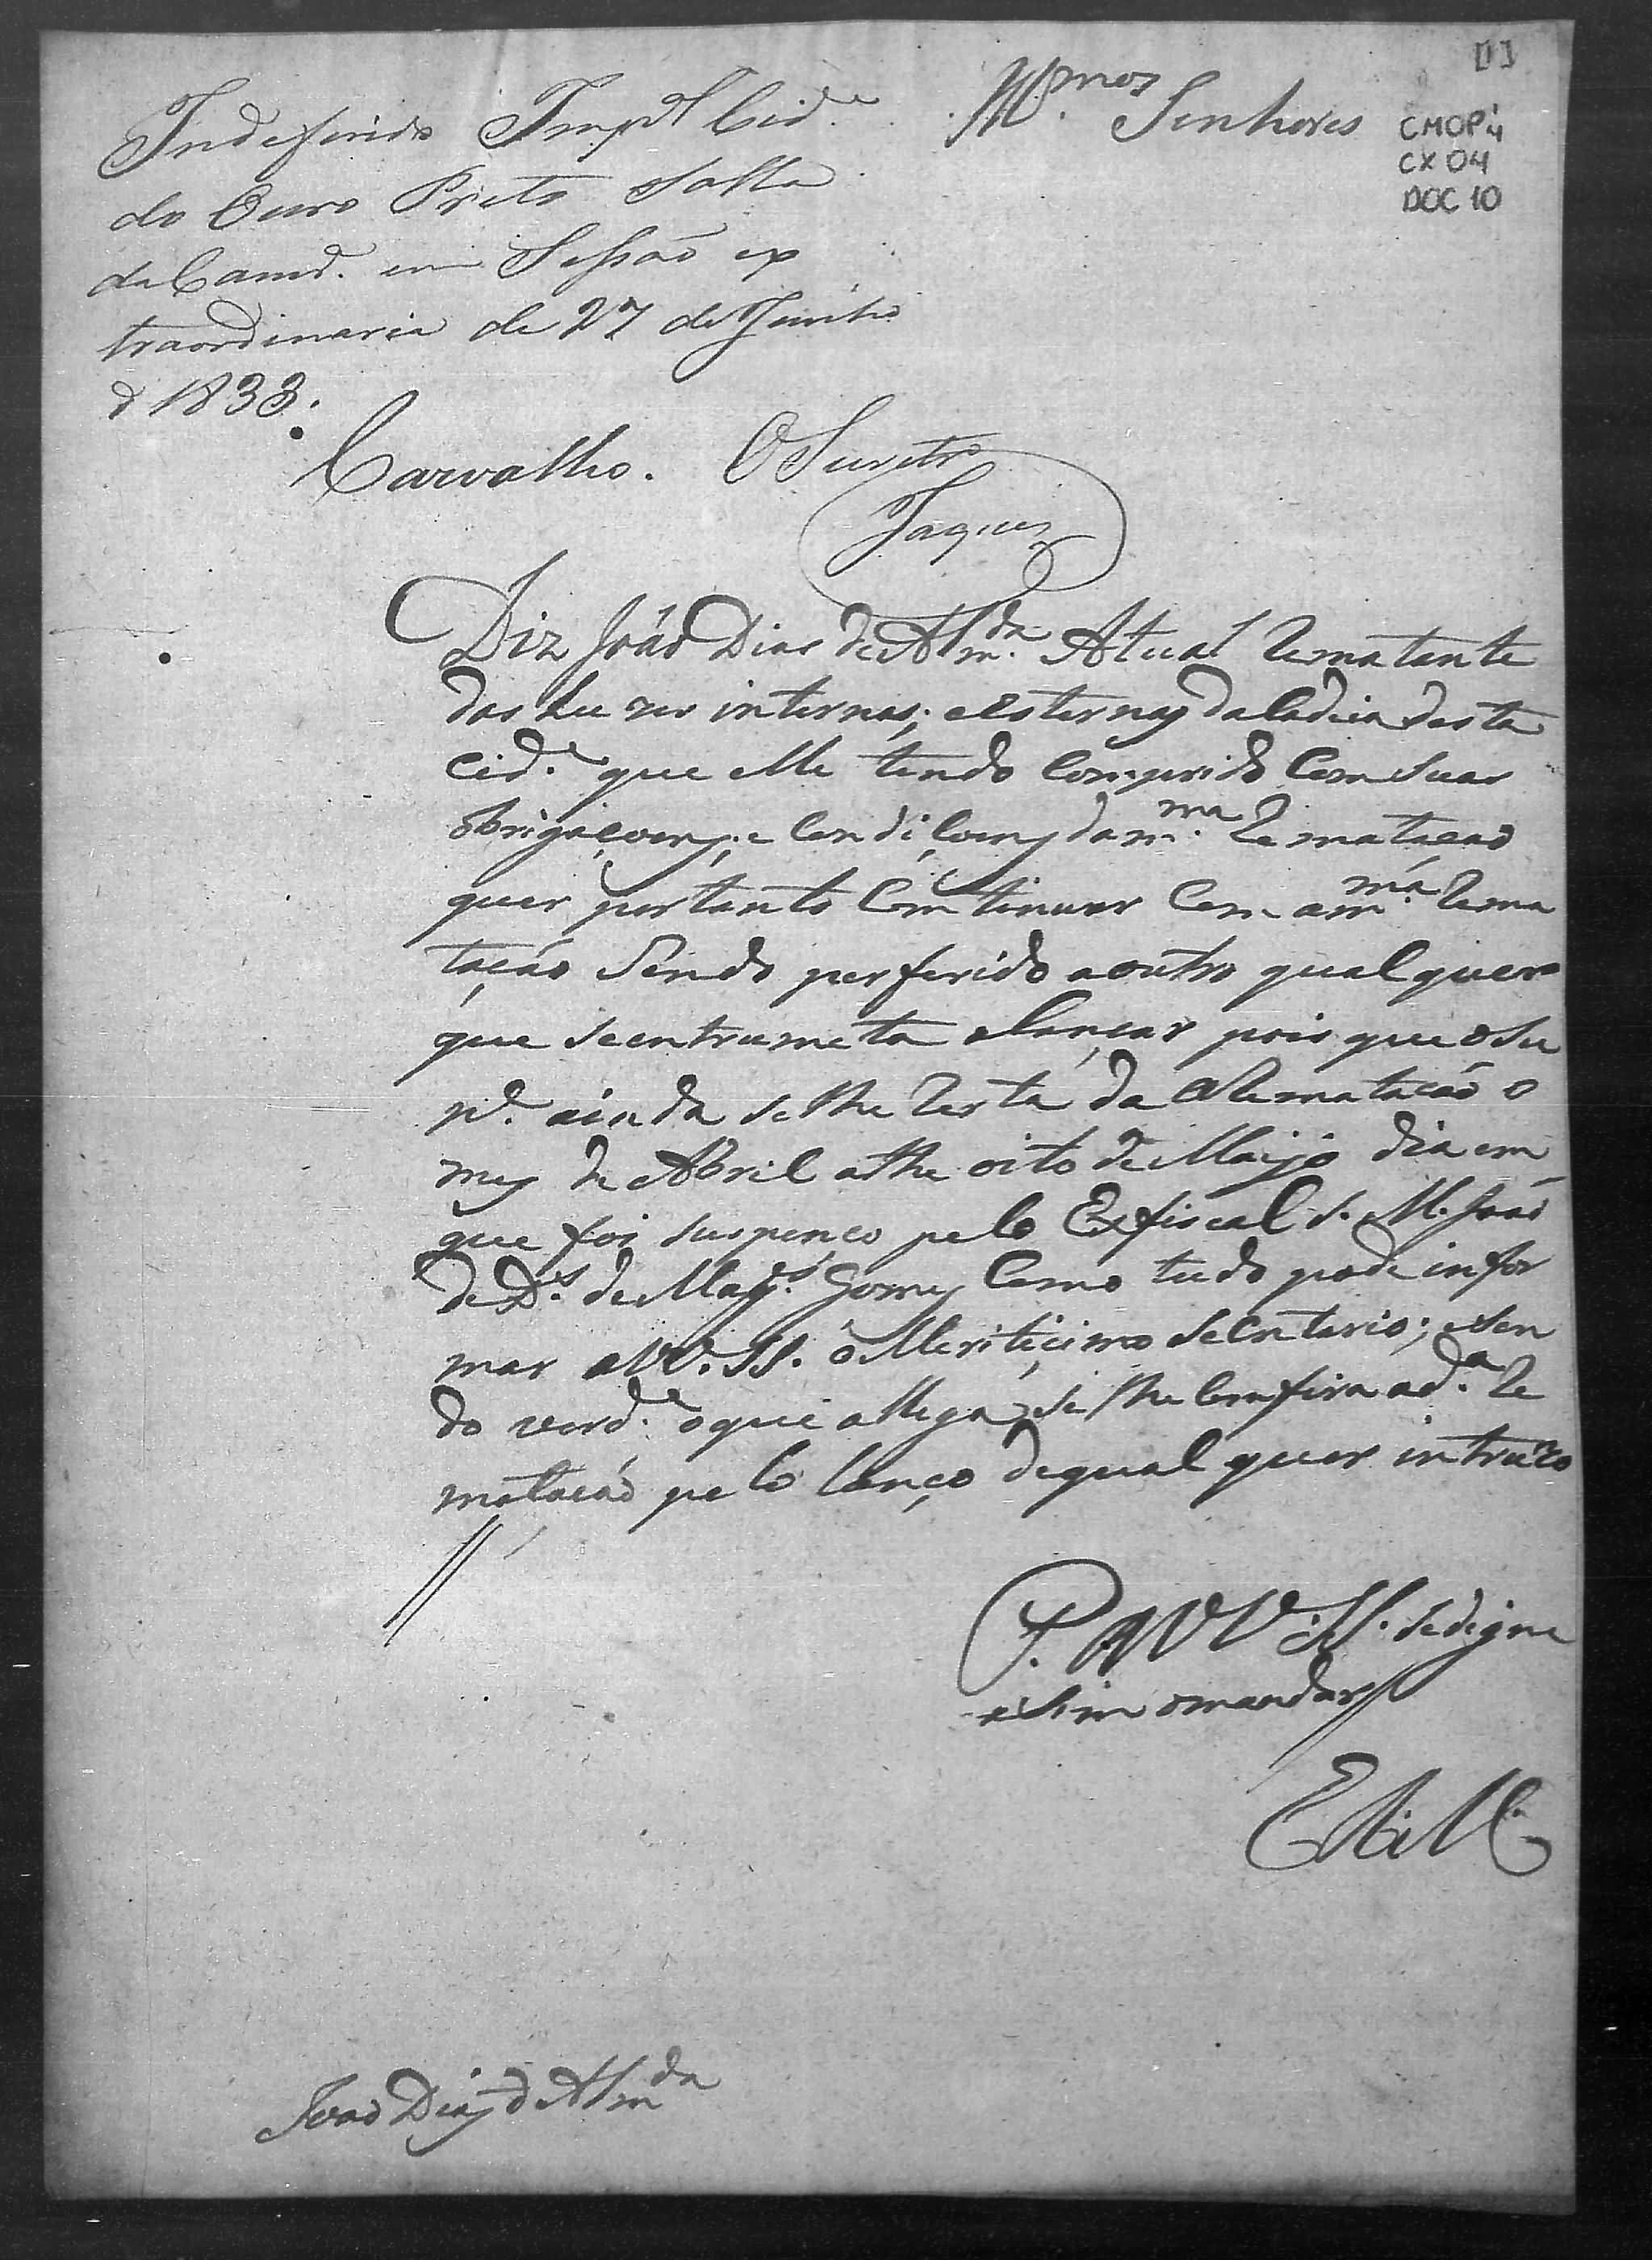 [1]
CMOP 4
CX 04
DOC 10
Ill.mos Senhores
Indeferido Imp.l Cid.e
do Ouro Preto Salla
da Camr.a em Sessão ex
traordinaria de 27 de Junho
d 1833.
Carvalho. O Secretr.o
Jaques
Diz João Dias de Alm.da Atual Rematante
das Luzes internas; e esternas da Cadeia desta
Cid.e que elle tendo Comprido Com suas
obrigaçoens; e Condiçoens da m.ma Rematação
quer portanto Continuar Com a m.ma Rema
tação Sendo perferido a outro qual quer
que se entrumeta a lançar pois que o Su
p.e ainda se lhe resta da Rematação o
mes de Abril athe oito de Maijo dia em
que foi suspenco pelo Exfiscal S. M. João
de D.s de Mag.s Gomes Como tudo pode infor
mar a VV. SS. o Meriticimo Secretario; e sen
do verd.e o que allega se lhe Comfira a d.a Re
matação pelo lanço de qual quer intruzo
P. A VV. SS. se digne
asim o mandar
E R M.ce
João Dias d Alm.da